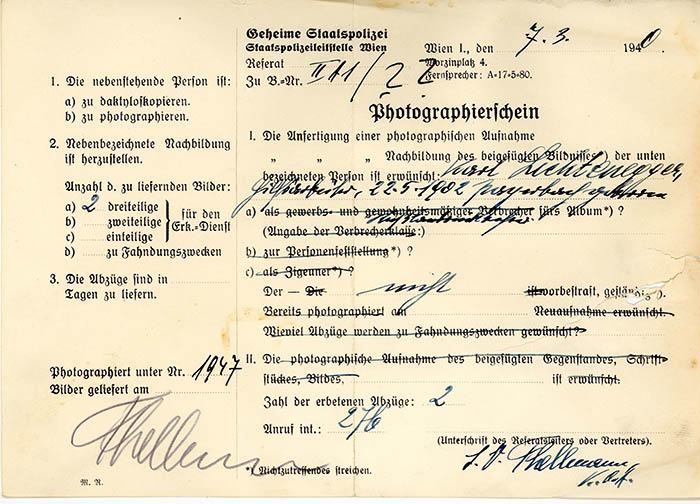 1. Die nebenstehende Person ist:
a) zu daktyloskopieren.
b) zu photographieren.
2. Nebenbezeichnete Nachbildung
ist herzustellen.
Anzahl d. zu liefernden Bilder:
a) 2 dreiteilige
b) zweiteilige
c) einteilige
für den
Erk.-Dienst
d) zu Fahndungszwecken
3. Die Abzüge sind in
Tagen zu liefern.
Photographiert unter Nr. 1947
Bilder geliefert am
M. R.
Geheime Staatspolizei
Staatspolizeileitstelle Wien
Referat
Zu B.-Nr. II A1/2
Wien I., den 7. 3. 1940.
Morzinplatz 4.
Fernsprecher: A-17-5-80.
Photographierschein
I. Die Anfertigung einer photographischen Aufnahme
" " " Nachbildung des beigefügten Bildnisses*) der unten
bezeichneten Person ist erwünscht: Karl
22.5.1902 Payerbach
a) als gewerbs- und gewohnheitsmäßiger Verbrecher fürs Album*) ?
(Angabe der Verbrecherklasse:)
b) zur Personenfeststellung*) ?
c) als Zigeuner*) ?
Der — Die nicht ist vorbestraft, geständig).
Bereits photographiert am Neuaufnahme erwünscht.
Wieviel Abzüge werden zu Fahndungszwecken gewünscht?
II. Die photographische Aufnahme des beigefügten Gegenstandes, Schrift-
stückes, Bildes, ist erwünscht.
Zahl der erbetenen Abzüge: 2
Anruf int.: 276
(Unterschrift des Referatsleiters oder Vertreters).
*) Nichtzutreffendes streichen.